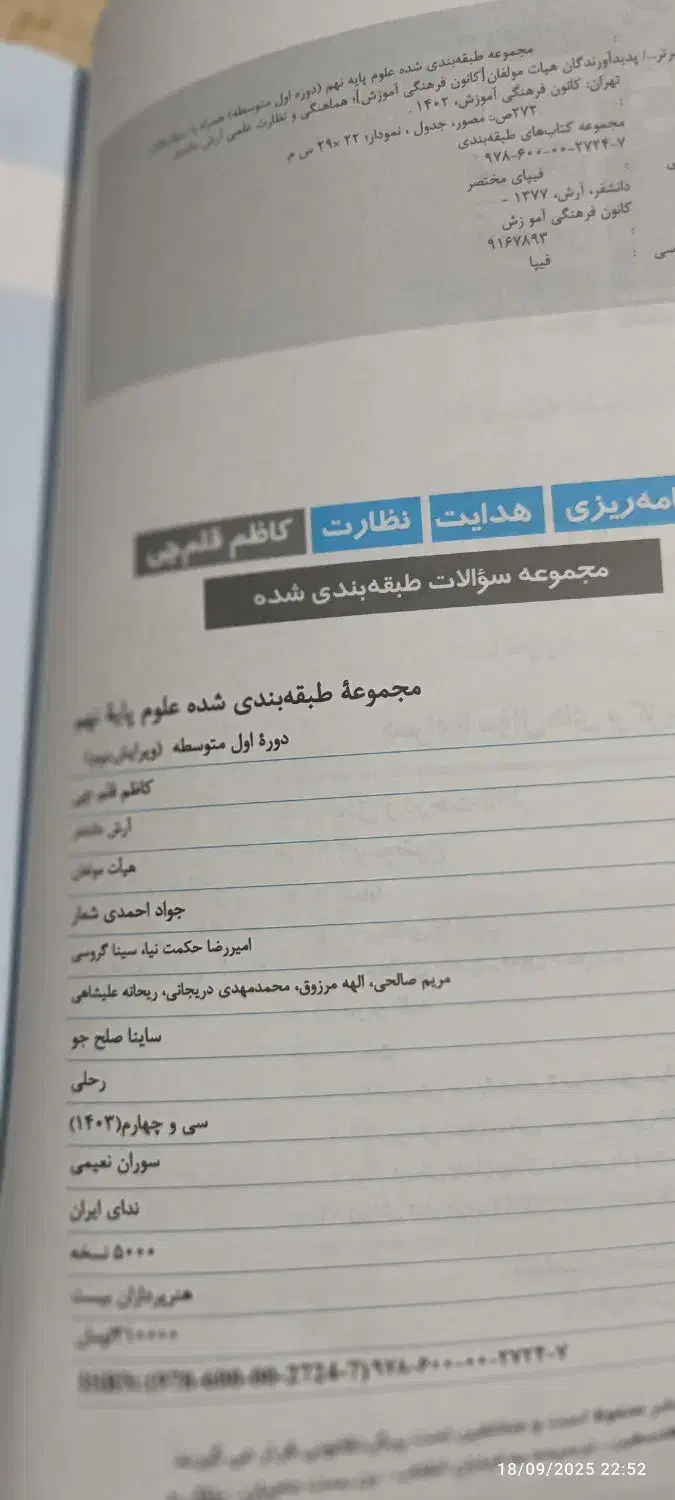 مجموعه طبقه‌بندی شده علوم پایه نهم (دوره اول متوسطه) همراه با
پدیدآورندگان هیات مولفان [کانون فرهنگی آموزش]؛ هماهنگی و نظارت علمی آرش
تهران: کانون فرهنگی آموزش، ۱۴۰۲ .
۲۷۲ص.: مصور، جدول ، نمودار؛ ۲۲ ×۲۹ س م.
مجموعه کتاب‌های طبقه‌بندی
۹۷۸-۶۰۰-۰۰-۲۷۲۴-۷
فیپای مختصر
دانشفر، آرش، ۱۳۷۷ -
کانون فرهنگی آمو زش
۹۱۶۷۸۹۳
فیپا
هدایت نظارت کاظم قلم‌چی
مجموعه سؤالات طبقه‌بندی شده
مجموعهٔ طبقه‌بندی شده علوم پایهٔ نهم
دورهٔ اول متوسطه
کاظم قلم چی
آرش
هیأت مولفان
جواد احمدی شعار
امیررضا حکمت نیا، سینا گروسی
مریم صالحی، الهه مرزوق، محمدمهدی دریجانی، ریحانه علیشاهی
ساینا صلح جو
رحلی
سی و چهارم(۱۴۰۳)
سوران نعیمی
ندای ایران
۵۰۰۰ نسخه
هنرپردازان بیست
ISBN: (978-600-00-2724-7) ۹۷۸-۶۰۰-۰۰-۲۷۲۴-۷
18/09/2025 22:52